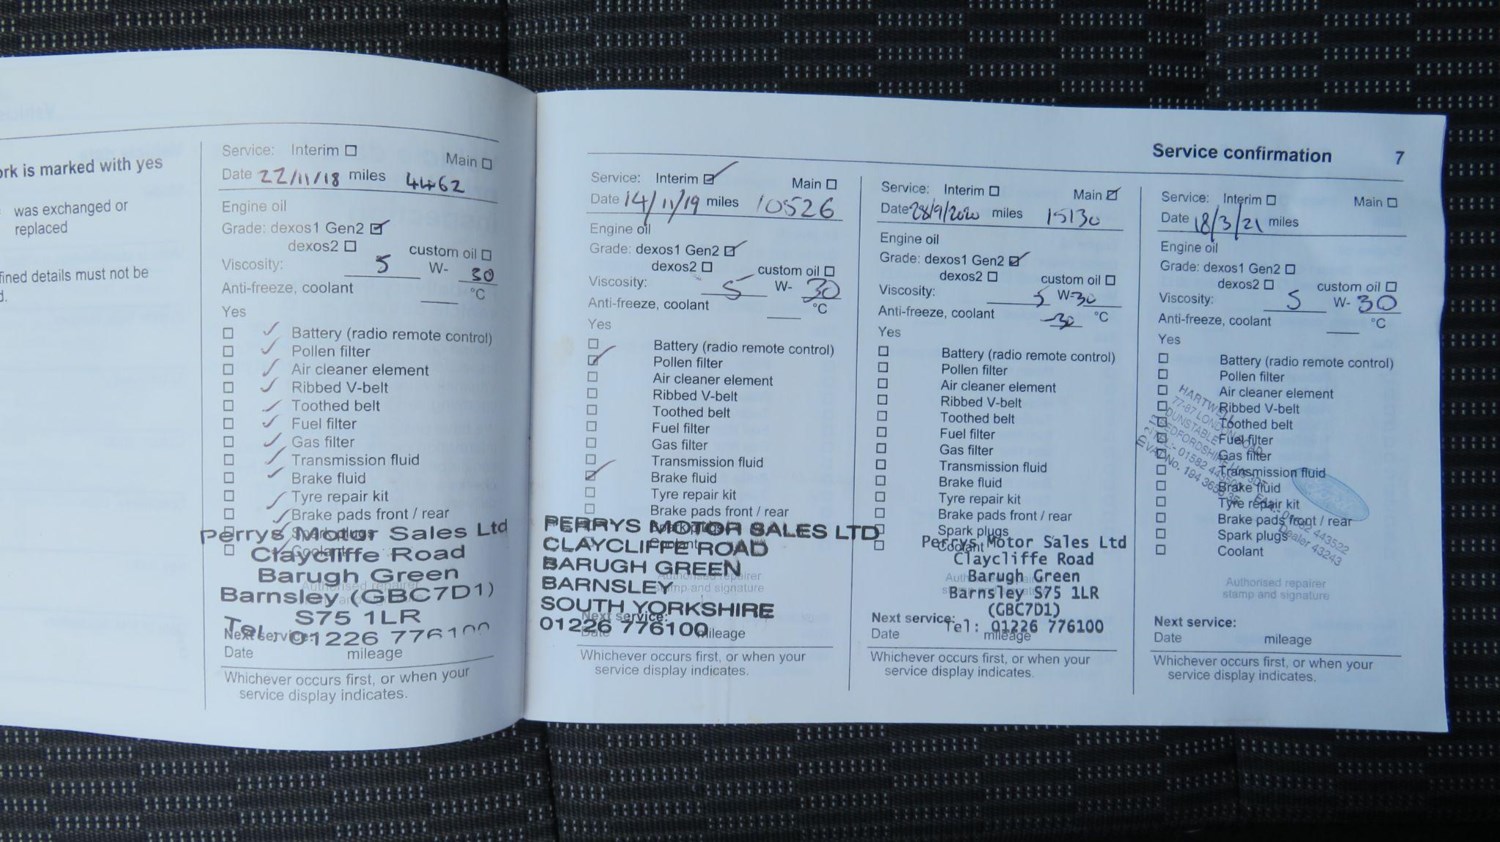 ork is marked with yes
was exchanged or
replaced
fined details must not be
d.
Service: Interim ☐ Main ☐
Date 22/11/18 miles 4462
Engine oil
Grade: dexos1 Gen2 ☑
dexos2 ☐ custom oil ☐
Viscosity: 5 W- 30
Anti-freeze, coolant °C
Yes
☐ ✓ Battery (radio remote control)
☐ ✓ Pollen filter
☐ ✓ Air cleaner element
☐ ✓ Ribbed V-belt
☐ ✓ Toothed belt
☐ ✓ Fuel filter
☐ ✓ Gas filter
☐ ✓ Transmission fluid
☐ ✓ Brake fluid
☐ ✓ Tyre repair kit
☐ ✓ Brake pads front / rear
☐ Spark plugs
☐ Coolant
Perrys Motor Sales Ltd
Claycliffe Road
Barugh Green
Barnsley (GBC7D1)
S75 1LR
Tel: 01226 776100
Authorised repairer
Next service:
Date mileage
Whichever occurs first, or when your
service display indicates.
Service confirmation 7
Service: Interim ☑ Main ☐
Date 14/11/19 miles 10526
Engine oil
Grade: dexos1 Gen2 ☑
dexos2 ☐ custom oil ☐
Viscosity: 5 W- 30
Anti-freeze, coolant °C
Yes
☐ Battery (radio remote control)
☑ Pollen filter
☐ Air cleaner element
☐ Ribbed V-belt
☐ Toothed belt
☐ Fuel filter
☐ Gas filter
☐ Transmission fluid
☑ Brake fluid
☐ Tyre repair kit
Brake pads front / rear
Spark plugs
Coolant
PERRYS MOTOR SALES LTD
CLAYCLIFFE ROAD
BARUGH GREEN
BARNSLEY
SOUTH YORKSHIRE
01226 776100
Authorised repairer
stamp and signature
Next service:
Date mileage
Whichever occurs first, or when your
service display indicates.
Service: Interim ☐ Main ☑
Date 28/9/2020 miles 15130
Engine oil
Grade: dexos1 Gen2 ☑
dexos2 ☐ custom oil ☐
Viscosity: 5 W-30
Anti-freeze, coolant -30 °C
Yes
☐ Battery (radio remote control)
☐ Pollen filter
☐ Air cleaner element
☐ Ribbed V-belt
☐ Toothed belt
☐ Fuel filter
☐ Gas filter
☐ Transmission fluid
☐ Brake fluid
☐ Tyre repair kit
☐ Brake pads front / rear
☐ Spark plugs
☐ Coolant
Perrys Motor Sales Ltd
Claycliffe Road
Barugh Green
Barnsley S75 1LR
(GBC7D1)
Tel: 01226 776100
Next service:
Date mileage
Whichever occurs first, or when your
service display indicates.
Service: Interim ☐ Main ☐
Date 18/3/21 miles
Engine oil
Grade: dexos1 Gen2 ☐
dexos2 ☐ custom oil ☐
Viscosity: 5 W- 30
Anti-freeze, coolant °C
Yes
☐ Battery (radio remote control)
☐ Pollen filter
☐ Air cleaner element
☐ Ribbed V-belt
☐ Toothed belt
☐ Fuel filter
☐ Gas filter
☐ Transmission fluid
☐ Brake fluid
☐ Tyre repair kit
☐ Brake pads front / rear
☐ Spark plugs
☐ Coolant
77-87 LONDON
DUNSTABLE
BEDFORDSHIRE
01582
VAT No. 194
443522
Dealer 43243
Authorised repairer
stamp and signature
Next service:
Date mileage
Whichever occurs first, or when your
service display indicates.